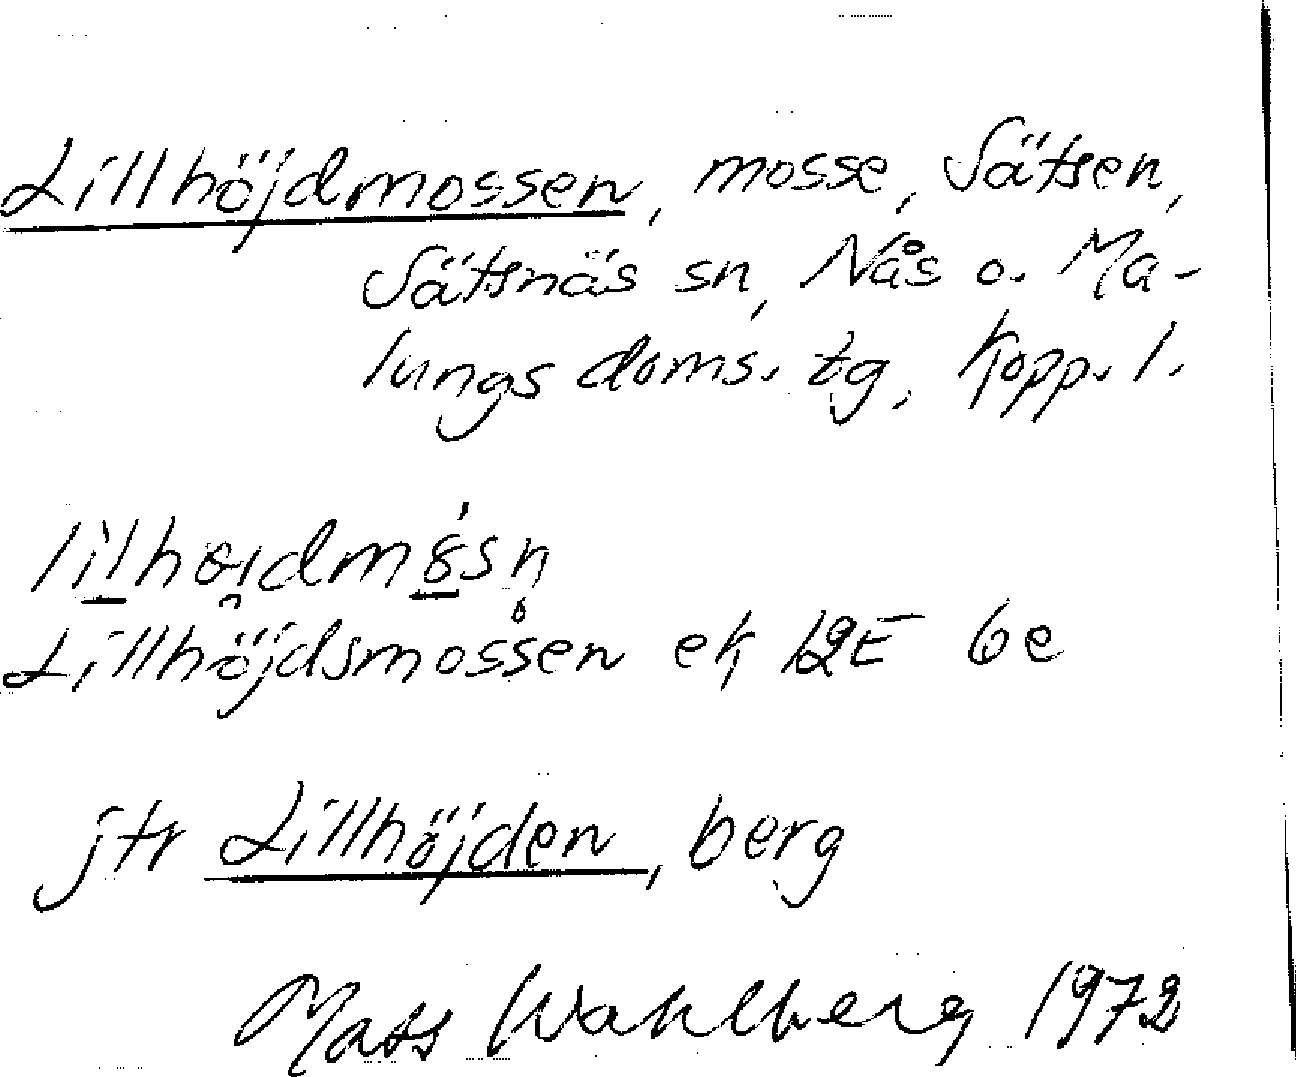 Lillhöjdmossen, mosse, Sätsen,
Sätsnäs sn, Nås o. Ma-
lungs doms. tg, Kopp. l.
Lillhöjdsmossen ek 12E 6e
jfr Lillhöjden, berg
Mats Wahlberg 1972